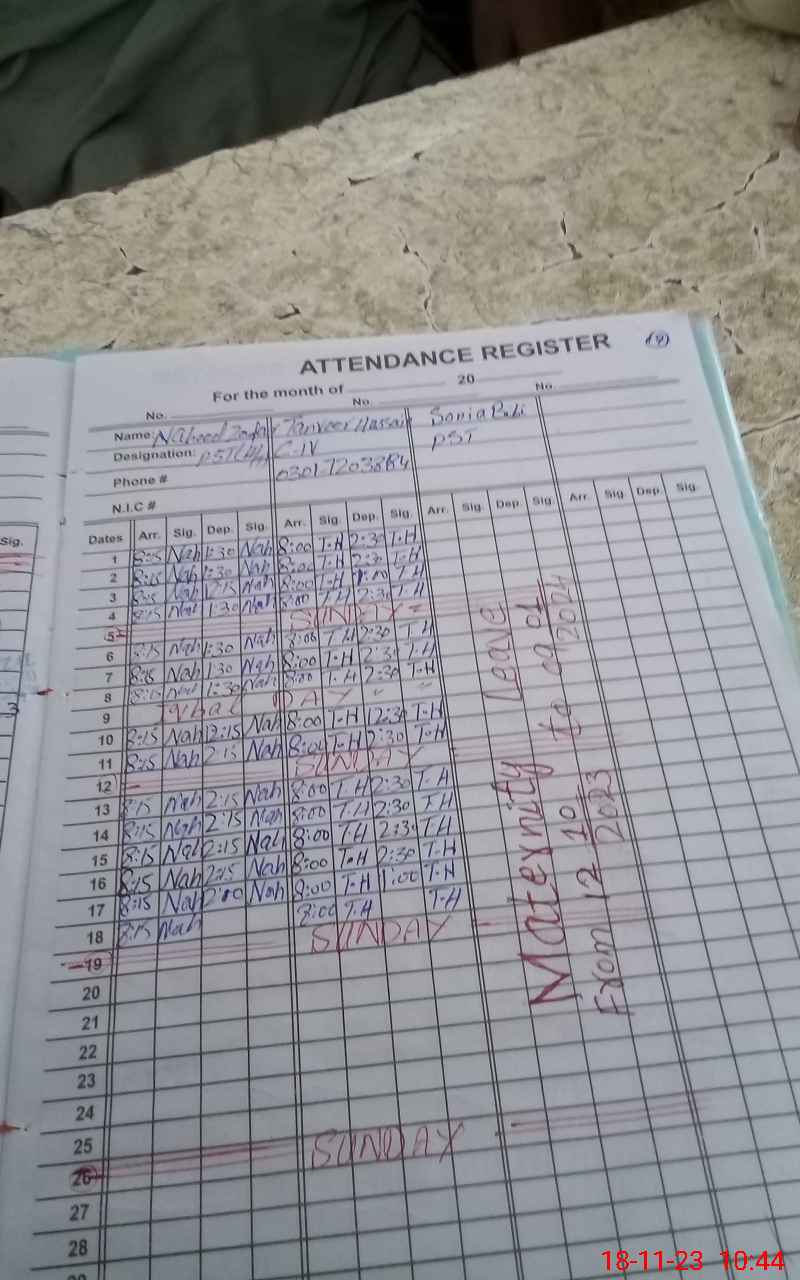 ATTENDANCE REGISTER
For the month of 20
No. No. No.
Name: Naheed Tanveer Hassain Sonia
Designation: PST C-IV PST
Phone #
N.I.C #
Dates Arr. Sig. Dep. Sig. Arr. Sig. Dep. Sig. Arr. Sig. Dep. Sig. Arr. Sig. Dep. Sig.
1 8:15 Nah 1:30 Nah 8:00 T-H 2:30 T-H
2 8:15 Nah 1:30 Nah 8:00 T-H 2:30 T-H
3 8:15 Nah 12:15 Nah 8:00 T-H 1:00 T H
4 8:15 Nah 1:30 Nah 8:00 T H 2:30 T-H
5 SUNDAY
6 8:15 Nah 1:30 Nah 8:00 T H 2:30 T H
7 8:15 Nah 1:30 Nah 8:00 T-H 2:30 T-H
8 8:15 Nah 1:30 Nah 8:00 T-H 2:30 T-H
9 Iqbal DAY
10 8:15 Nah 12:15 Nah 8:00 T-H 12:30 T-H
11 8:15 Nah 2:15 Nah 8:00 T-H 2:30 T-H
12 SUNDAY
13 8:15 Nah 2:15 Nah 8:00 T H 2:30 T-H
14 8:15 Nah 2:15 Nah 8:00 T-H 2:30 T-H
15 8:15 Nah 2:15 Nah 8:00 T H 2:30 T H
16 8:15 Nah 2:15 Nah 8:00 T-H 2:30 T-H
17 8:15 Nah Nah 8:00 T-H 1:00 T-H
18 8:15 Nah 8:00 T-H T-H
19 SUNDAY
20
21
22
23
24
25
26 SUNDAY
27
28
Maternity Leave
From 12 10 2023 to 01 2024
Sig.
3
18-11-23 10:44